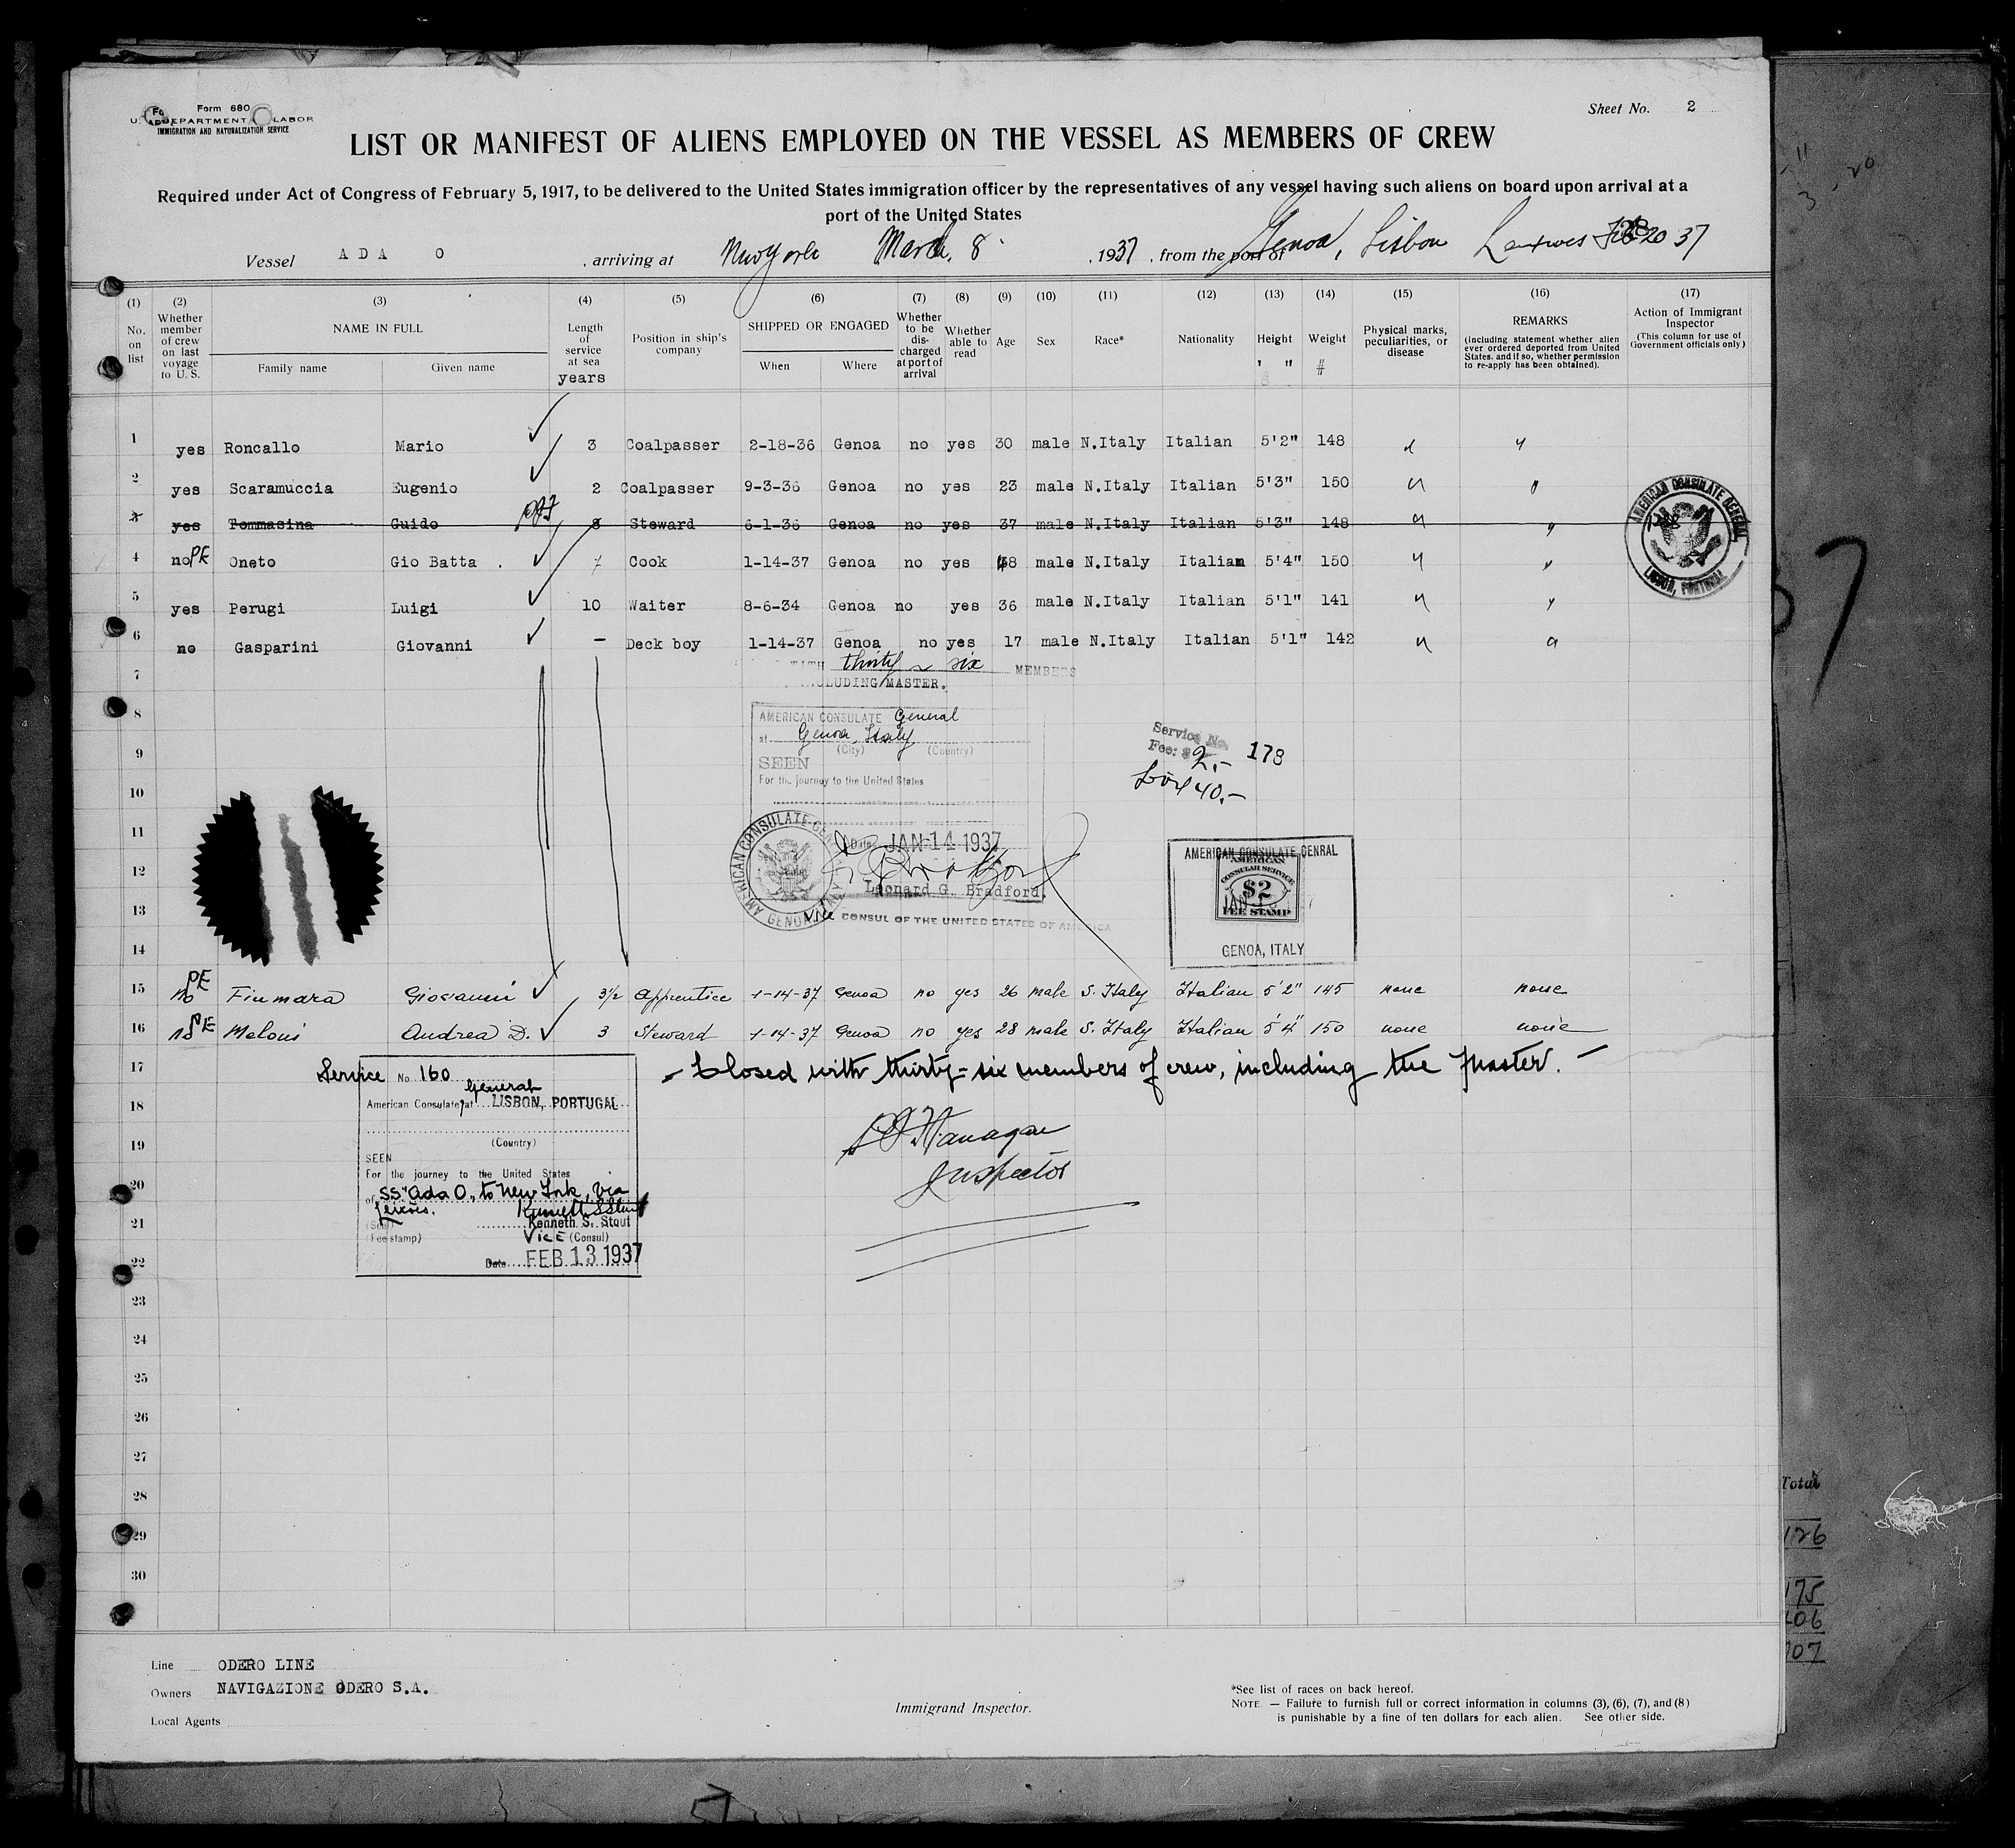 Form 680
U. S. DEPARTMENT OF LABOR
IMMIGRATION AND NATURALIZATION SERVICE
Sheet No. 2
LIST OR MANIFEST OF ALIENS EMPLOYED ON THE VESSEL AS MEMBERS OF CREW
Required under Act of Congress of February 5, 1917, to be delivered to the United States immigration officer by the representatives of any vessel having such aliens on board upon arrival at a
port of the United States
Vessel ADA O , arriving at New York March 8 , 1937 , from the port of Genoa, Lisbon 20 37
(1) (2) (3) (4) (5) (6) (7) (8) (9) (10) (11) (12) (13) (14) (15) (16) (17)
No. on list
Whether member of crew on last voyage to U. S.
NAME IN FULL
Family name Given name
Length of service at sea
years
Position in ship's company
SHIPPED OR ENGAGED
When Where
Whether to be discharged at port of arrival
Whether able to read
Age
Sex
Race*
Nationality
Height ' "
Weight #
Physical marks, peculiarities, or disease
REMARKS
(including statement whether alien ever ordered deported from United States, and if so, whether permission to re-apply has been obtained).
Action of Immigrant Inspector
(This column for use of Government officials only)
1 yes Roncallo Mario 3 Coalpasser 2-18-36 Genoa no yes 30 male N.Italy Italian 5'2" 148
2 yes Scaramuccia Eugenio 2 Coalpasser 9-3-36 Genoa no yes 23 male N.Italy Italian 5'3" 150
3 yes Tommasina Guido 8 Steward 6-1-36 Genoa no yes 37 male N.Italy Italian 5'3" 148
4 no PE Oneto Gio Batta Cook 1-14-37 Genoa no yes 48 male N.Italy Italian 5'4" 150
5 yes Perugi Luigi 10 Waiter 8-6-34 Genoa no yes 36 male N.Italy Italian 5'1" 141
6 no Gasparini Giovanni – Deck boy 1-14-37 Genoa no yes 17 male N.Italy Italian 5'1" 142
AMERICAN CONSULATE GENERAL
LISBON, PORTUGAL
7 WITH thirty - six MEMBERS
INCLUDING MASTER.
8 AMERICAN CONSULATE General
at Genoa, Italy
9 (City) (Country)
SEEN
For the journey to the United States
Service No. 178
Fee: $ 2.-
40.-
10
11
Date JAN 14 1937
AMERICAN CONSULATE GENERAL
GENOA, ITALY
12
Leonard G. Bradford
Vice CONSUL OF THE UNITED STATES OF AMERICA
13
14
AMERICAN CONSULATE GENRAL
AMERICAN
CONSULAR SERVICE
$2
FEE STAMP
GENOA, ITALY
15 no PE Fiumara Giovanni 3½ Apprentice 1-14-37 Genoa no yes 26 male S. Italy Italian 5'2" 145 none none
16 no PE Meloni Andrea D. 3 Steward 1-14-37 Genoa no yes 28 male S. Italy Italian 5'4" 150 none none
17 Closed with thirty-six members of crew, including the Master. —
Service No. 160
18 American Consulate General at LISBON, PORTUGAL
19 (Country)
Flanagan
Inspector
SEEN
For the journey to the United States
20 of SS "Ada O", to New York, via
Leixoes.
21 (Seal) Kenneth S. Stout
(Fee stamp) Vice (Consul)
22 Date FEB 13 1937
23
24
25
26
27
28
29
30
Total
126
175
106
107
Line ODERO LINE
Owners NAVIGAZIONE ODERO S.A.
Local Agents
Immigrand Inspector.
*See list of races on back hereof.
NOTE — Failure to furnish full or correct information in columns (3), (6), (7), and (8)
is punishable by a fine of ten dollars for each alien. See other side.